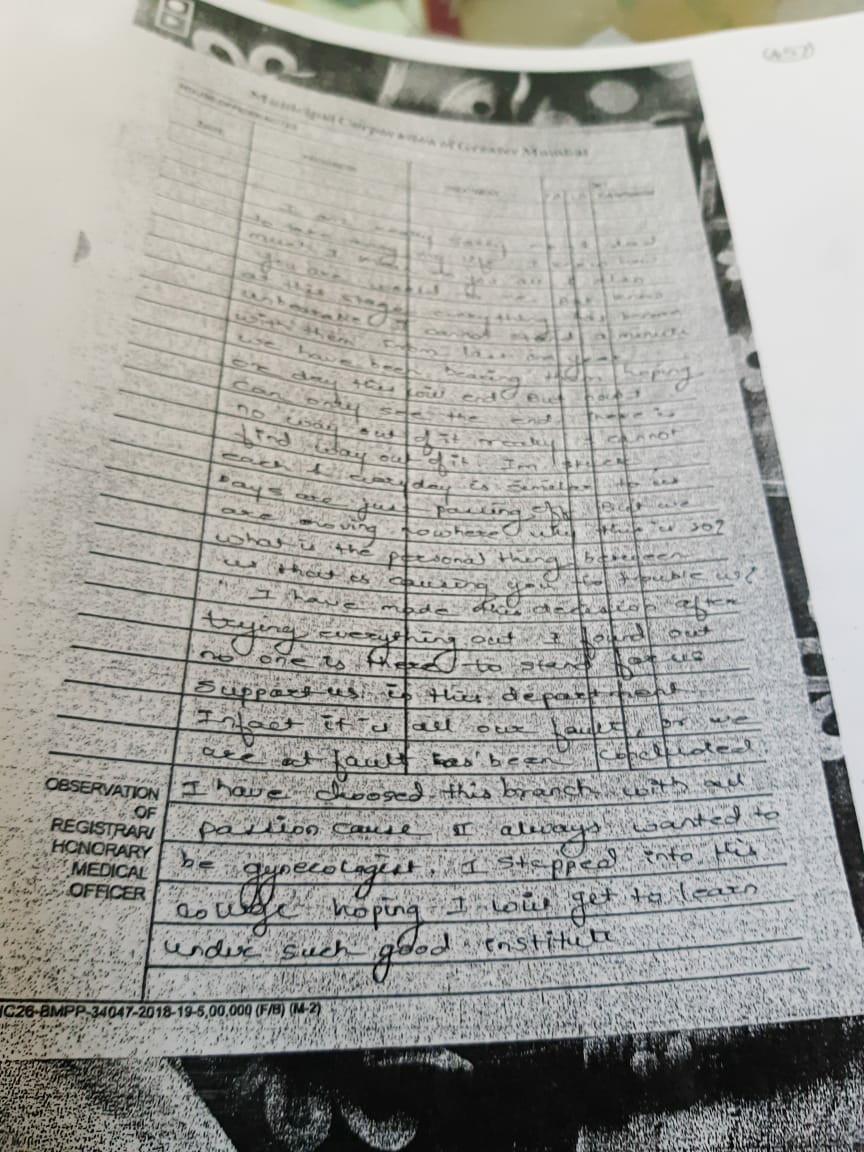 (457)
Municipal Corporation of Greater Mumbai
I am really sorry
to take away my life I know how
much I mean to you all
you are would to me. But know
at this stage everything has become
unbearable I cannot stand a minute
with them from last one year
we have been bearing them hoping
one day this will end But now I
can only see the end there is
no way out of it really I cannot
find way out of it. Im stuck
each & everyday is similar to us
Days are just passing off But we
are moving nowhere why this is so?
what is the personal thing between
us that is causing you to trouble us?
I have made this decision after
trying everything out I found out
no one is there to stand for us
Support us in this department
Infact it is all our fault, or we
are at fault has been concluded
OBSERVATION
OF
REGISTRAR/
HONORARY
MEDICAL
OFFICER
I have choosed this branch with all
passion cause I always wanted to
be gynecologist. I stepped into this
college hoping I will get to learn
under such good institute
IC26-BMPP-34047-2018-19-5,00,000 (F/B) (M-2)